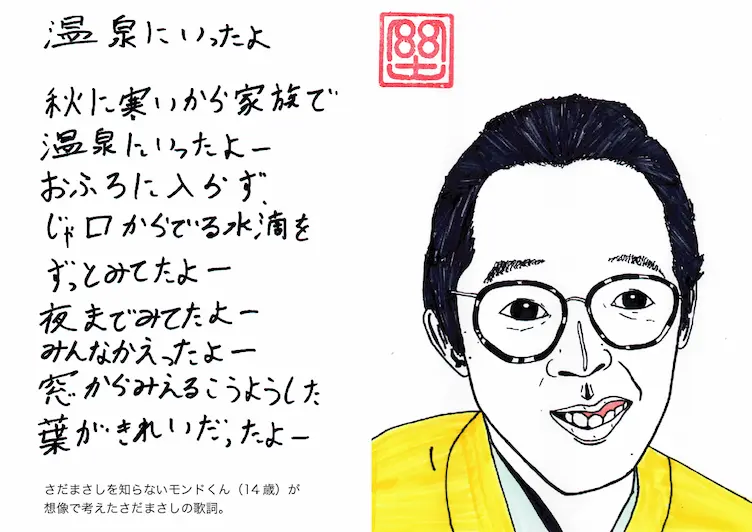 温泉にいったよ
秋に寒いから家族で
温泉にいったよー
おふろに入らず、
じゃ口からでる水滴を
ずっとみてたよー
夜までみてたよー
みんなかえったよー
窓からみえるこうようした
葉がきれいだったよー
さだまさしを知らないモンドくん（14歳）が
想像で考えたさだまさしの歌詞。